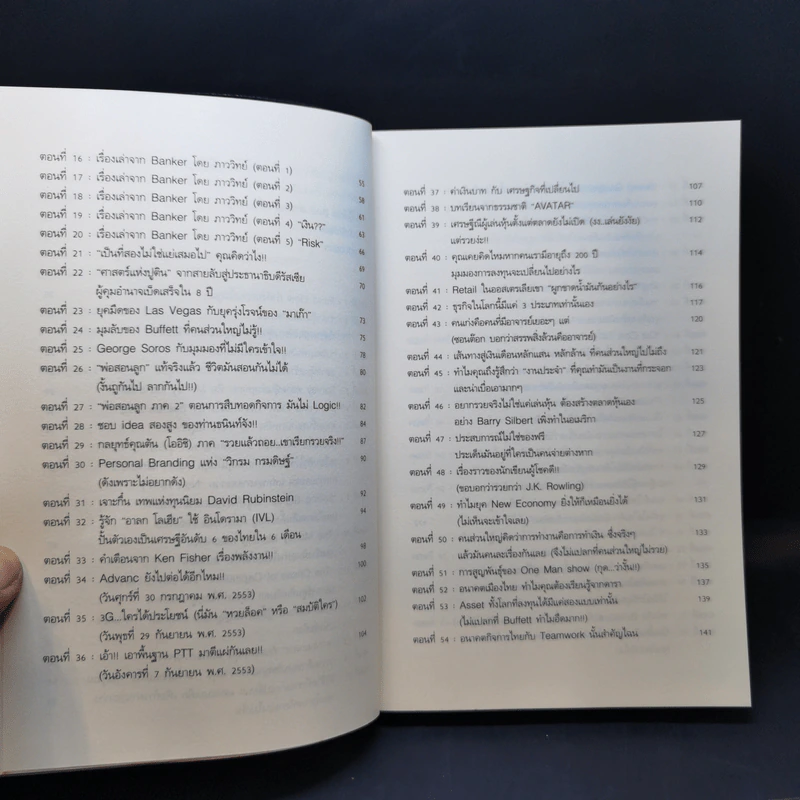 ตอนที่ 16 : เรื่องเล่าจาก Banker โดย ภาววิทย์ (ตอนที่ 1) 55
ตอนที่ 17 : เรื่องเล่าจาก Banker โดย ภาววิทย์ (ตอนที่ 2) 58
ตอนที่ 18 : เรื่องเล่าจาก Banker โดย ภาววิทย์ (ตอนที่ 3) 61
ตอนที่ 19 : เรื่องเล่าจาก Banker โดย ภาววิทย์ (ตอนที่ 4) "เงิน??" 63
ตอนที่ 20 : เรื่องเล่าจาก Banker โดย ภาววิทย์ (ตอนที่ 5) "Risk" 66
ตอนที่ 21 : "เป็นที่สองไม่ใช่แย่เสมอไป" คุณคิดว่าไง!! 69
ตอนที่ 22 : "ศาสตร์แห่งปูติน" จากสายลับสู่ประธานาธิบดีรัสเซีย 70
ผู้คุมอำนาจเบ็ดเสร็จใน 8 ปี
ตอนที่ 23 : ยุคมืดของ Las Vegas กับยุครุ่งโรจน์ของ "มาเก๊า" 73
ตอนที่ 24 : มุมลับของ Buffett ที่คนส่วนใหญ่ไม่รู้!! 75
ตอนที่ 25 : George Soros กับมุมมองที่ไม่มีใครเข้าใจ!! 78
ตอนที่ 26 : "พ่อสอนลูก" แท้จริงแล้ว ชีวิตมันสอนกันไม่ได้ 80
(รั้นถูกันไป ลากกันไป!!)
ตอนที่ 27 : "พ่อสอนลูก ภาค 2" ตอนการสืบทอดกิจการ มันไม่ Logic!! 82
ตอนที่ 28 : ชอบ idea สองสูง ของท่านธนินท์จัง!! 84
ตอนที่ 29 : กลยุทธ์คุณตัน (โออิชิ) ภาค "รวยแล้วถอย...เขาเรียกรวยจริง!!" 87
ตอนที่ 30 : Personal Branding แห่ง "วิกรม กรมดิษฐ์" 90
(ดังเพราะไม่อยากดัง)
ตอนที่ 31 : เจาะกึ๋น เทพแห่งทุนนิยม David Rubinstein 92
ตอนที่ 32 : รู้จัก "อาลก โลเฮีย" ใช้ อินโดรามา (IVL) 94
ปั้นตัวเองเป็นเศรษฐีอันดับ 6 ของไทยใน 6 เดือน
ตอนที่ 33 : คำเตือนจาก Ken Fisher เรื่องพลังงาน!! 98
ตอนที่ 34 : Advanc ยังไปต่อได้อีกไหม!! 100
(วันศุกร์ที่ 30 กรกฎาคม พ.ศ. 2553)
ตอนที่ 35 : 3G...ใครได้ประโยชน์ (นี่มัน "หวยล็อค" หรือ "สมบัติใคร") 102
(วันพุธที่ 29 กันยายน พ.ศ. 2553)
ตอนที่ 36 : เอ้า!! เอาพื้นฐาน PTT มาตีแผ่กันเลย!! 104
(วันอังคารที่ 7 กันยายน พ.ศ. 2553)
ตอนที่ 37 : ค่าเงินบาท กับ เศรษฐกิจที่เปลี่ยนไป 107
ตอนที่ 38 : บทเรียนจากธรรมชาติ "AVATAR" 110
ตอนที่ 39 : เศรษฐีผู้เล่นหุ้นตั้งแต่ตลาดยังไม่เปิด (งง..เล่นยังงัย) 112
แต่รวยง่ะ!!
ตอนที่ 40 : คุณเคยคิดไหมหากคนเรามีอายุถึง 200 ปี 114
มุมมองการลงทุนจะเปลี่ยนไปอย่างไร
ตอนที่ 41 : Retail ในออสเตรเลียเขา "ผูกขาดน้ำมันกันอย่างไร" 116
ตอนที่ 42 : ธุรกิจในโลกนี้มีแค่ 3 ประเภทเท่านั้นเอง 117
ตอนที่ 43 : คนเก่งคือคนที่มีอาจารย์เยอะๆ แต่ 120
(ซอนต๊อก บอกว่าสรรพสิ่งล้วนคืออาจารย์)
ตอนที่ 44 : เส้นทางสู่เงินเดือนหลักแสน หลักล้าน ที่คนส่วนใหญ่ไปไม่ถึง 121
ตอนที่ 45 : ทำไมคุณถึงรู้สึกว่า "งานประจำ" ที่คุณทำมันเป็นงานที่กระจอก 123
และน่าเบื่อเอามากๆ
ตอนที่ 46 : อยากรวยจริงไม่ใช่แค่เล่นหุ้น ต้องสร้างตลาดหุ้นเอง 125
อย่าง Barry Silbert เพิ่งทำในอเมริกา
ตอนที่ 47 : ประสบการณ์ไม่ใช่ของฟรี 127
ประเด็นมันอยู่ที่ใครเป็นคนจ่ายต่างหาก
ตอนที่ 48 : เรื่องราวของนักเขียนผู้โชคดี!! 129
(ชอบบอกว่ารวยกว่า J.K. Rowling)
ตอนที่ 49 : ทำไมยุค New Economy ยิ่งให้ก็เหมือนยิ่งได้ 131
(ไม่เห็นจะเข้าใจเลย)
ตอนที่ 50 : คนส่วนใหญ่คิดว่าการทำงานคือการทำเงิน ซึ่งจริงๆ 133
แล้วมันคนละเรื่องกันเลย (จึงไม่แปลกที่คนส่วนใหญ่ไม่รวย)
ตอนที่ 51 : การสูญพันธุ์ของ One Man show (กูด...ว่างั้น!!) 135
ตอนที่ 52 : อนาคตเมืองไทย ทำไมคุณต้องเรียนรู้จากดารา 137
ตอนที่ 53 : Asset ทั้งโลกที่ลงทุนได้มีแค่สองแบบเท่านั้น 139
(ไม่แปลกที่ Buffett ทำไมอึดมาก!!)
ตอนที่ 54 : อนาคตกิจการไทยกับ Teamwork นั้นสำคัญไฉน 141